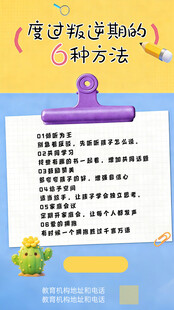 度过叛逆期的
6种方法
01倾听为王
别急着反驳，先听听孩子怎么说。
02共同学习
找些有趣的书一起看，增加共同话题
03鼓励赞美
多夸夸孩子的好，增强自信心
04给予空间
适当放手，让孩子学会独立思考。
05家庭会议
定期开家庭会，让每个人都发声
06爱的拥抱
有时候一个拥抱胜过千言万语
教育机构地址和电话
教育机构地址和电话